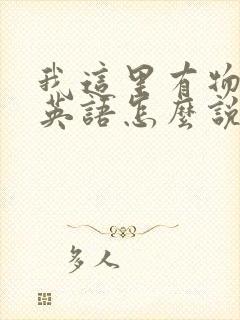 我這里有物
英語怎麼說
多人